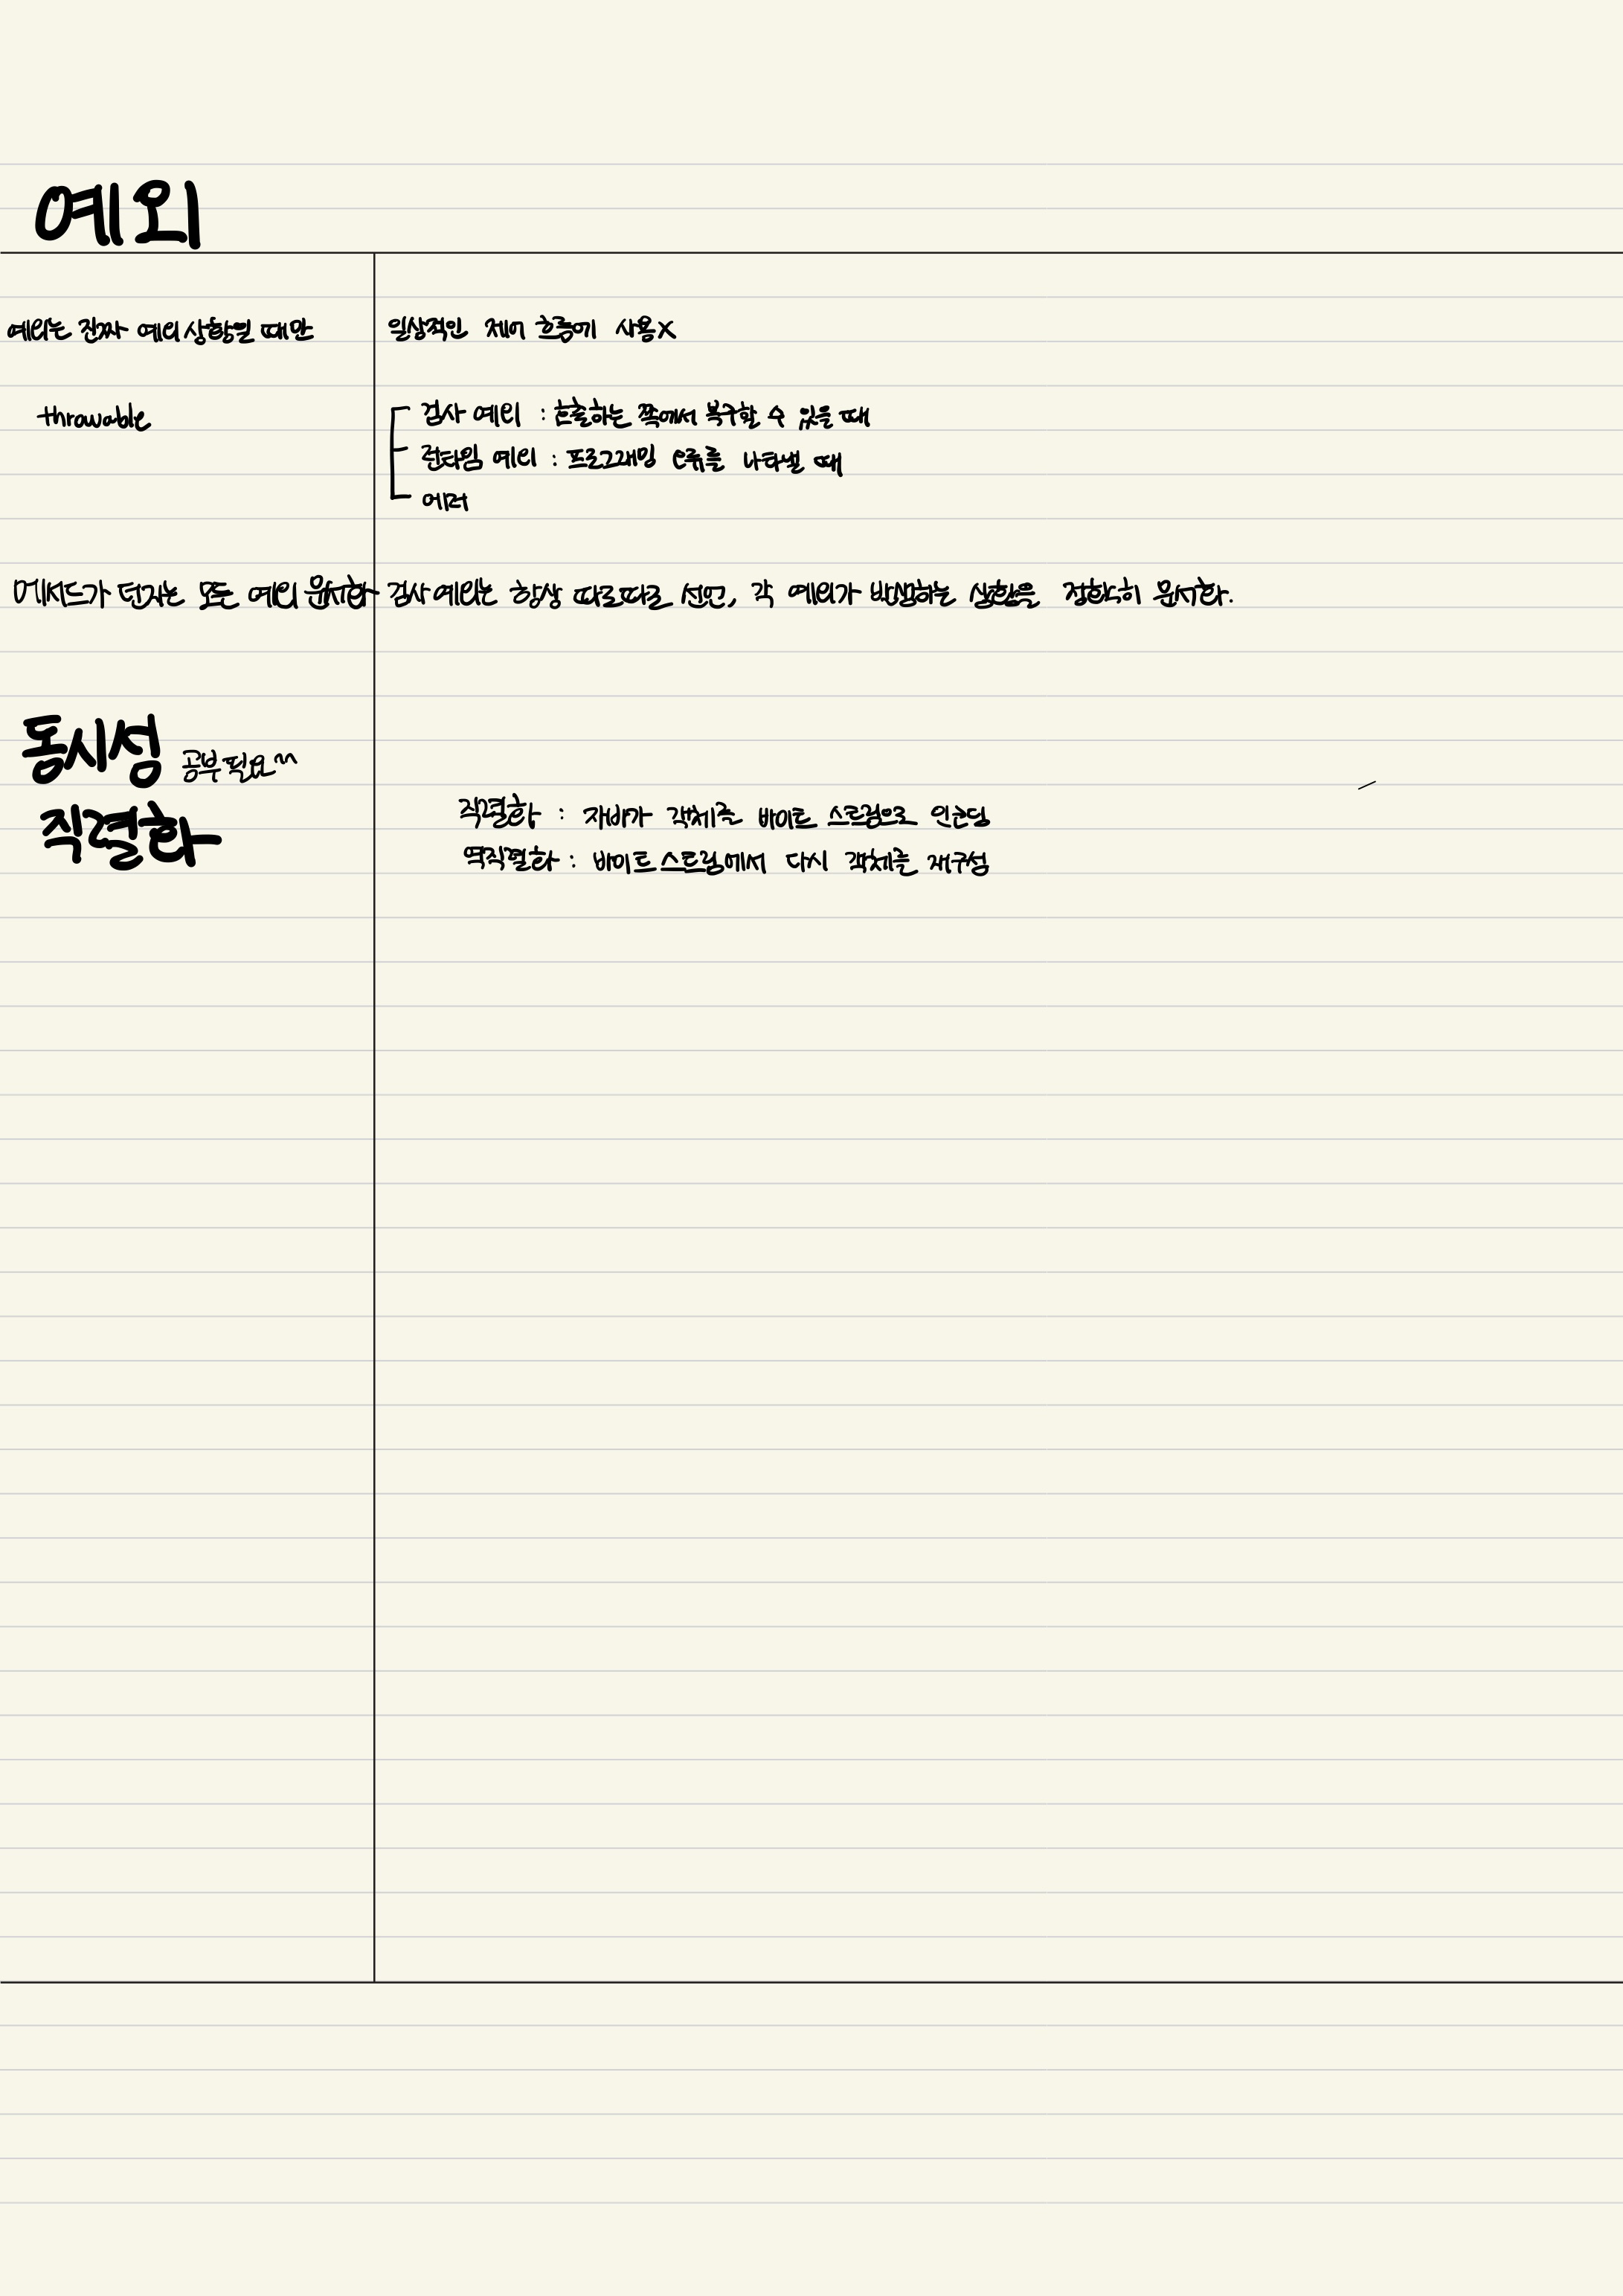 예외
예외는 진짜 예외 상황일 때만 일상적인 제어 흐름에 사용X
throwable
검사 예외 : 호출하는 쪽에서 복구할 수 있을 때
런타임 예외 : 프로그래밍 오류를 나타낼 때
에러
메서드가 던지는 모든 예외 문서화 검사 예외는 항상 따로따로 선언, 각 예외가 발생하는 상황을 정확히 문서화.
동시성 공부 필요~
직렬화
직렬화 : 자바가 객체를 바이트 스트림으로 인코딩
역직렬화 : 바이트 스트림에서 다시 객체를 재구성